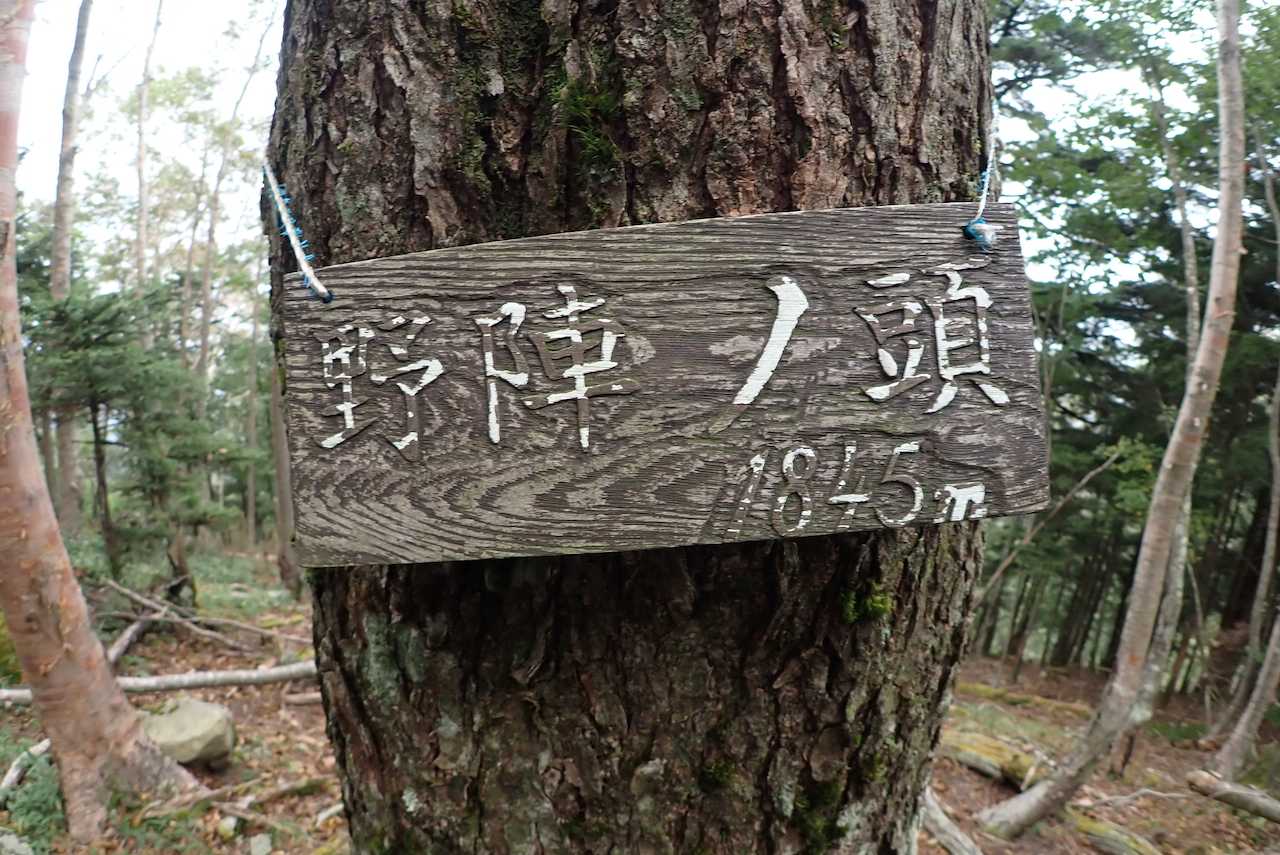 野陣ノ頭
1845m